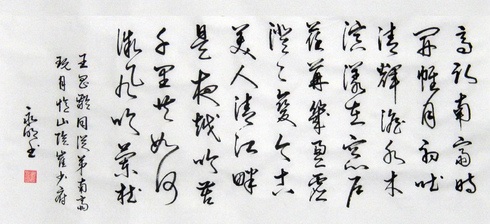 高臥南齋時
開帷月初吐
清輝澹水木
演漾在窗戶
荏苒幾盈虛
澄々變今古
美人清江畔
是夜越吟苦
千里共如何
微風吹蘭杜
王昌齡同從弟南齋
玩月憶山陰崔少府